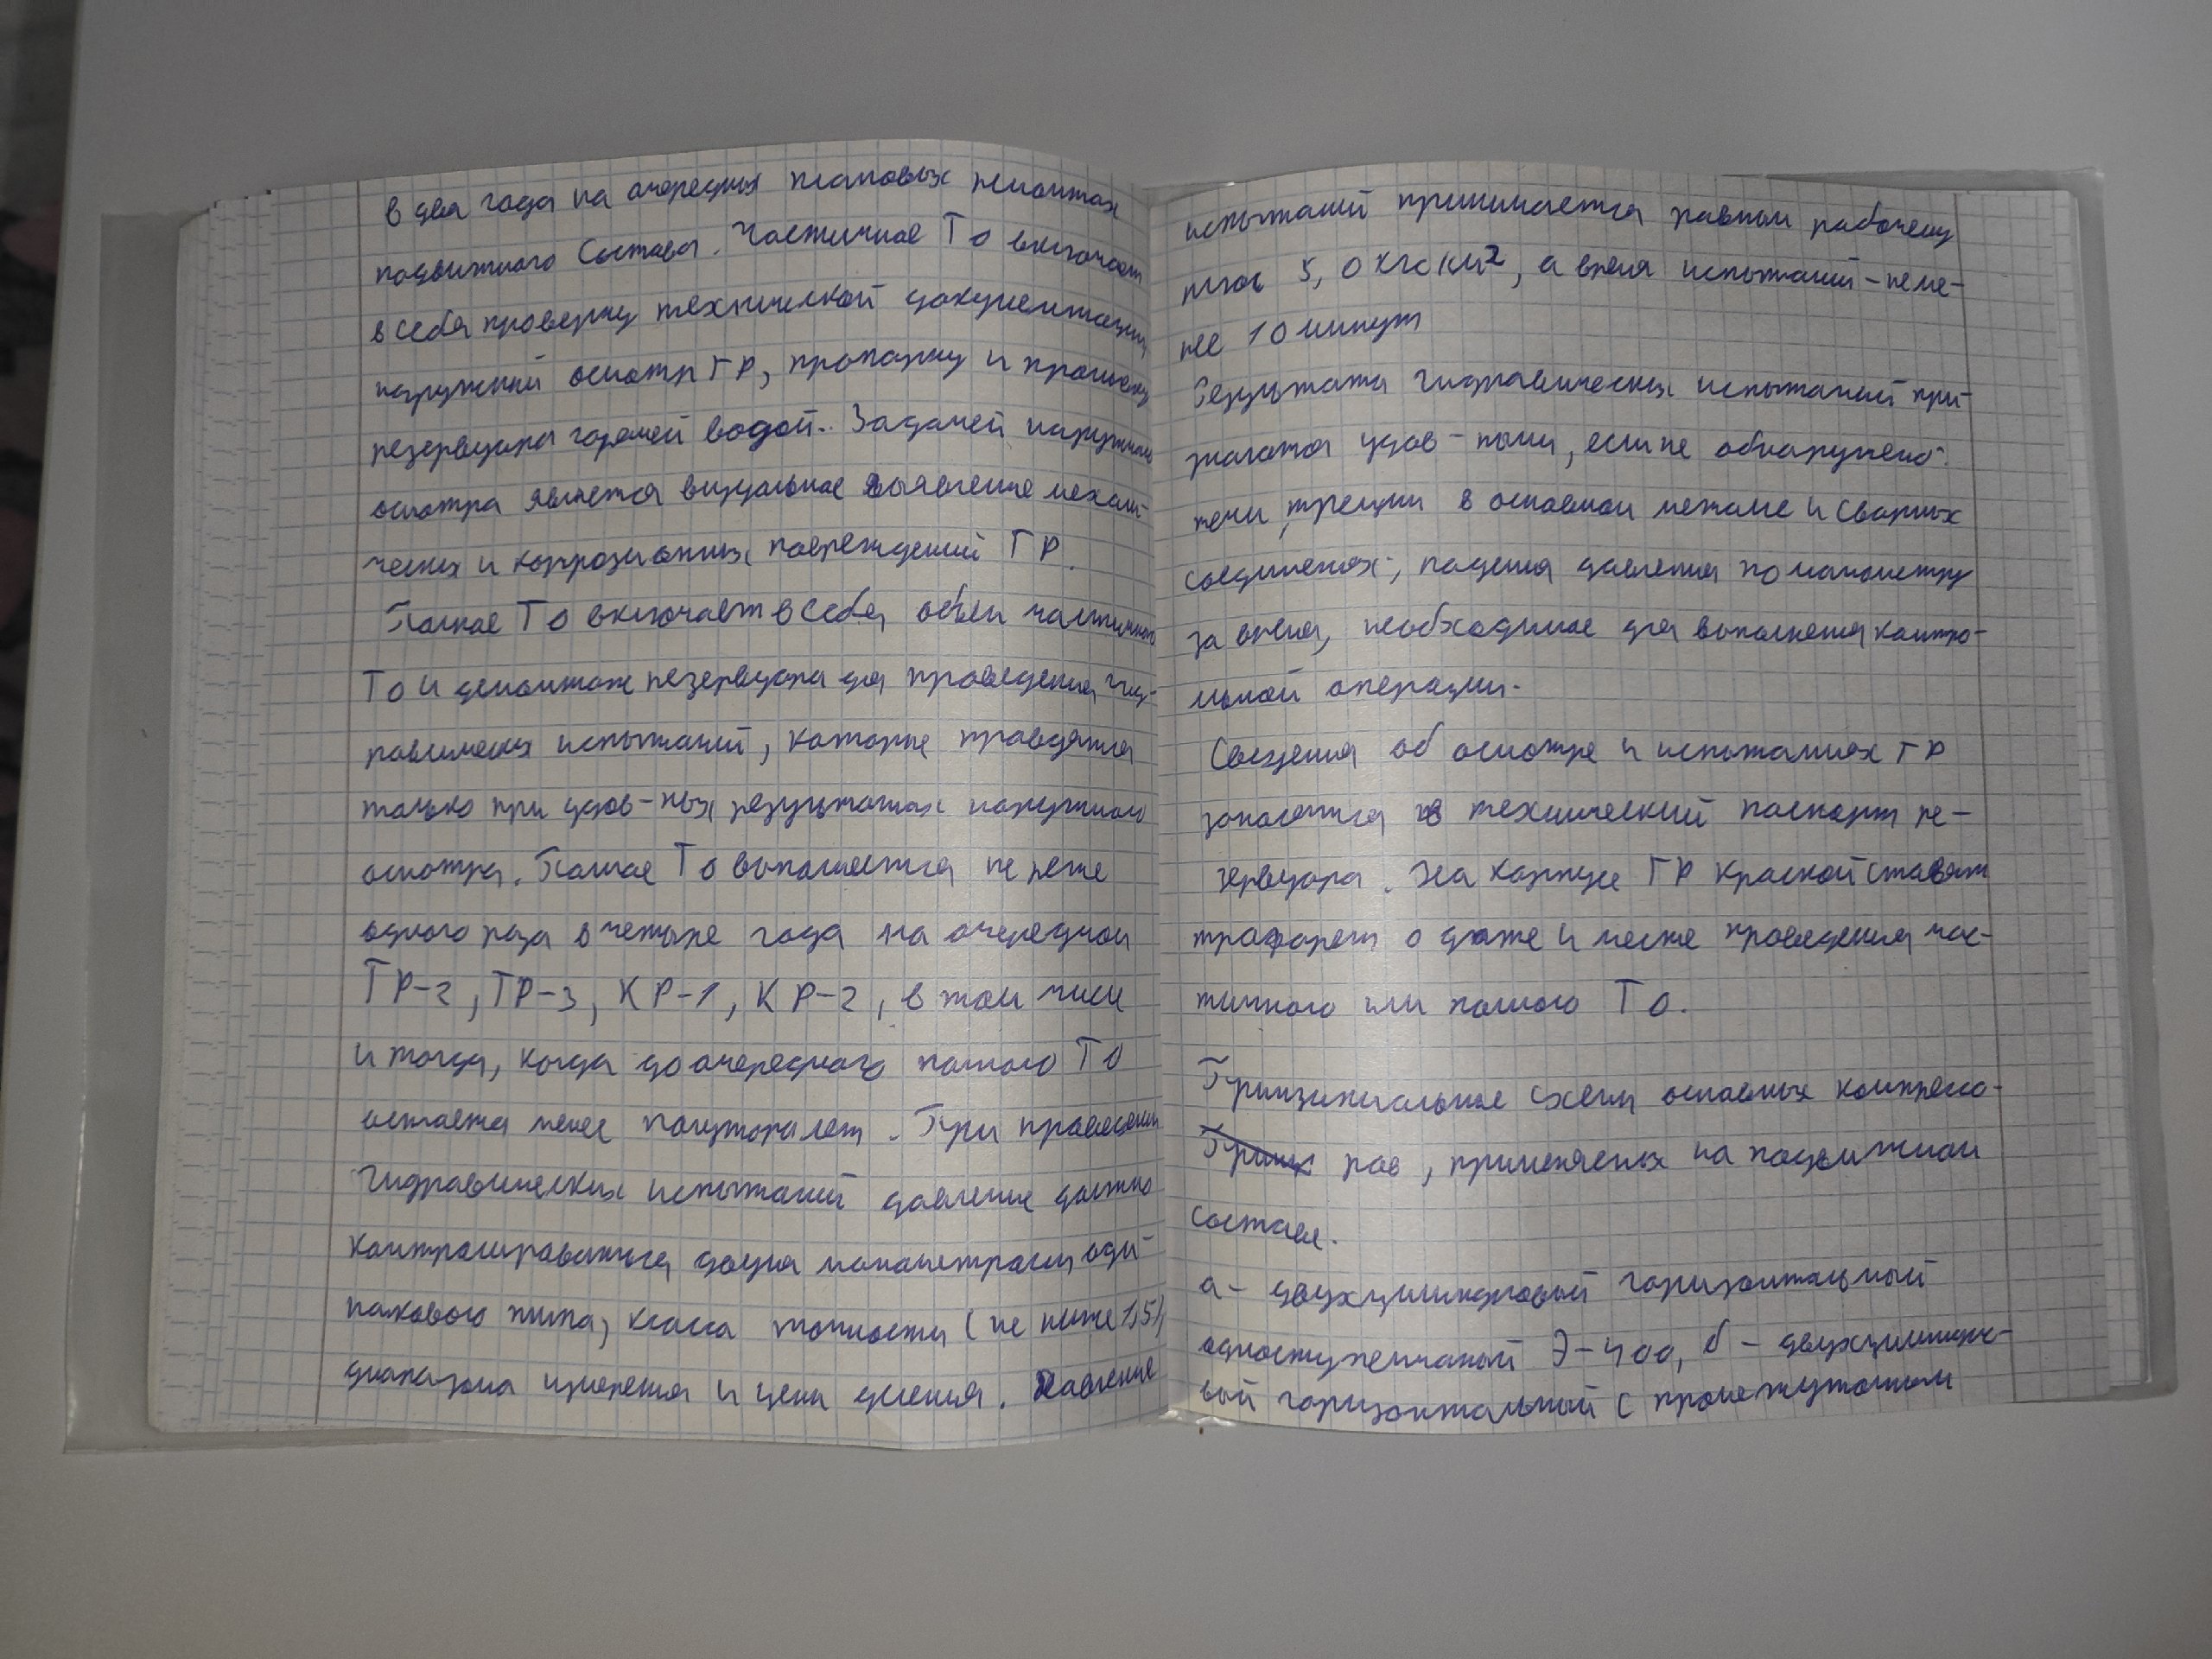 в два года на очередных плановых ремонтах
подвижного Состава. Частичное ТО включает
в себя проверку технической документации
наружный осмотр ГР, пропарку и промывку
резервуара горячей водой. Задачей наружного
осмотра является визуальное выявление механи-
ческих и коррозионных повреждений ГР.
Полное ТО включает в себя объем частичного
ТО и демонтаж резервуара для проведения гид-
равлических испытаний, которые проводятся
только при удов-ных результатах наружного
осмотра. Полное ТО выполняется не реже
одного раза в четыре года на очередном
ТР-2, ТР-3, КР-1, КР-2, в том числе
и тогда, когда до очередного полного ТО
остается менее полутора лет. При проведении
гидравлических испытаний давление должно
контролироваться двумя манометрами оди-
накового типа, класса точности (не ниже 1,5),
диапазона измерения и цены деления. Давление
испытаний принимается равным рабочему
плюс 5,0 кгс км2, а время испытаний - не ме-
нее 10 минут
Результаты гидравлических испытаний при-
знаются удов-ными, если не обнаружено:
течи, трещин в основном метале и сварных
соединениях; падения давления по манометру
за время, необходимое для выполнения контро-
льной операции.
Сведения об осмотре и испытаниях ГР
заносятся в технический паспорт ре-
зервуара. На корпусе ГР краской ставят
трафарет о дате и месте проведения час-
тичного или полного ТО.
Принципиальные схемы основных компрессо-
ров, применяемых на подвижном
составе.
а - двухцилиндровый горизонтальный
одноступенчатый Э-400, б - двухцилиндро-
вый горизонтальный с промежуточным